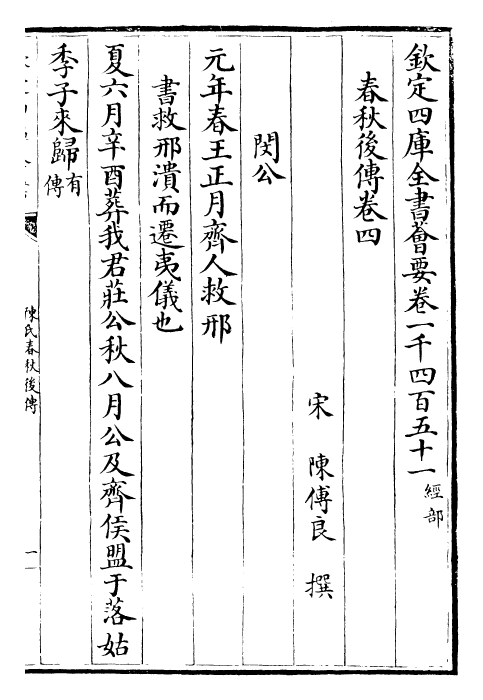 欽定四庫全書薈要卷一千四百五十一 經部
春秋後傳卷四
宋 陳傅良 撰
閔公
元年春王正月齊人救邢
書救邢潰而遷夷儀也
夏六月辛酉葬我君莊公秋八月公及齊侯盟于落姑
季子來歸有傳
陳氏春秋後傳
一